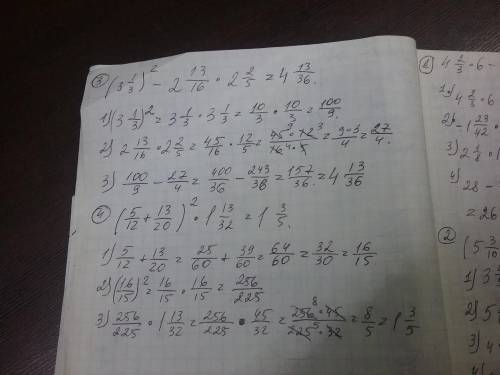 ③ (3 1/3)² − 2 13/16 · 2 2/5 = 4 13/36.
1) (3 1/3)² = 3 1/3 · 3 1/3 = 10/3 · 10/3 = 100/9.
2) 2 13/16 · 2 2/5 = 45/16 · 12/5 = 45 9 · 12 3/16 4 · 5 = 9·3/4 = 27/4.
3) 100/9 − 27/4 = 400/36 − 243/36 = 157/36 = 4 13/36
④ (5/12 + 13/20)² · 1 13/32 = 1 3/5.
1) 5/12 + 13/20 = 25/60 + 39/60 = 64/60 = 32/30 = 16/15
2) (16/15)² = 16/15 · 16/15 = 256/225
3) 256/225 · 1 13/32 = 256/225 · 45/32 = 256 8 · 45/225 5 · 32 = 8/5 = 1 3/5
4 2/3 · 6 −
1) 4 2/3 · 6
2) 1 23/42
3) 2 1/8 ·
4)
28 −
= 26
②
(5 3/10
1) 3
2) 5
3) 4